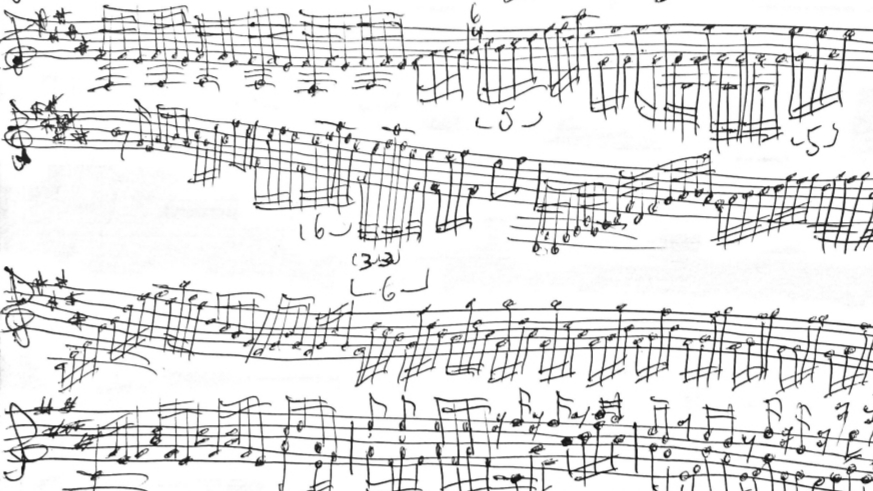 6
4
5
5
6
3 3
6